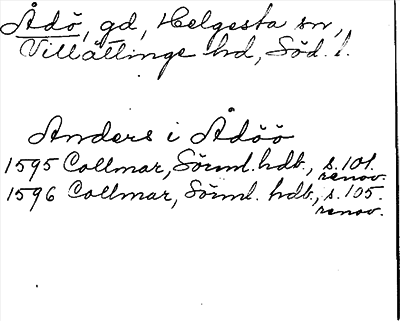 Ådö, gd, Helgesta sn,
Villåttinge hd, Söd. l.
Anders i Ådöö
1595 Collmar, Sörml. hdb., s. 101.
renov.
1596 Collmar, Sörml. hdb., s. 105.
renov.